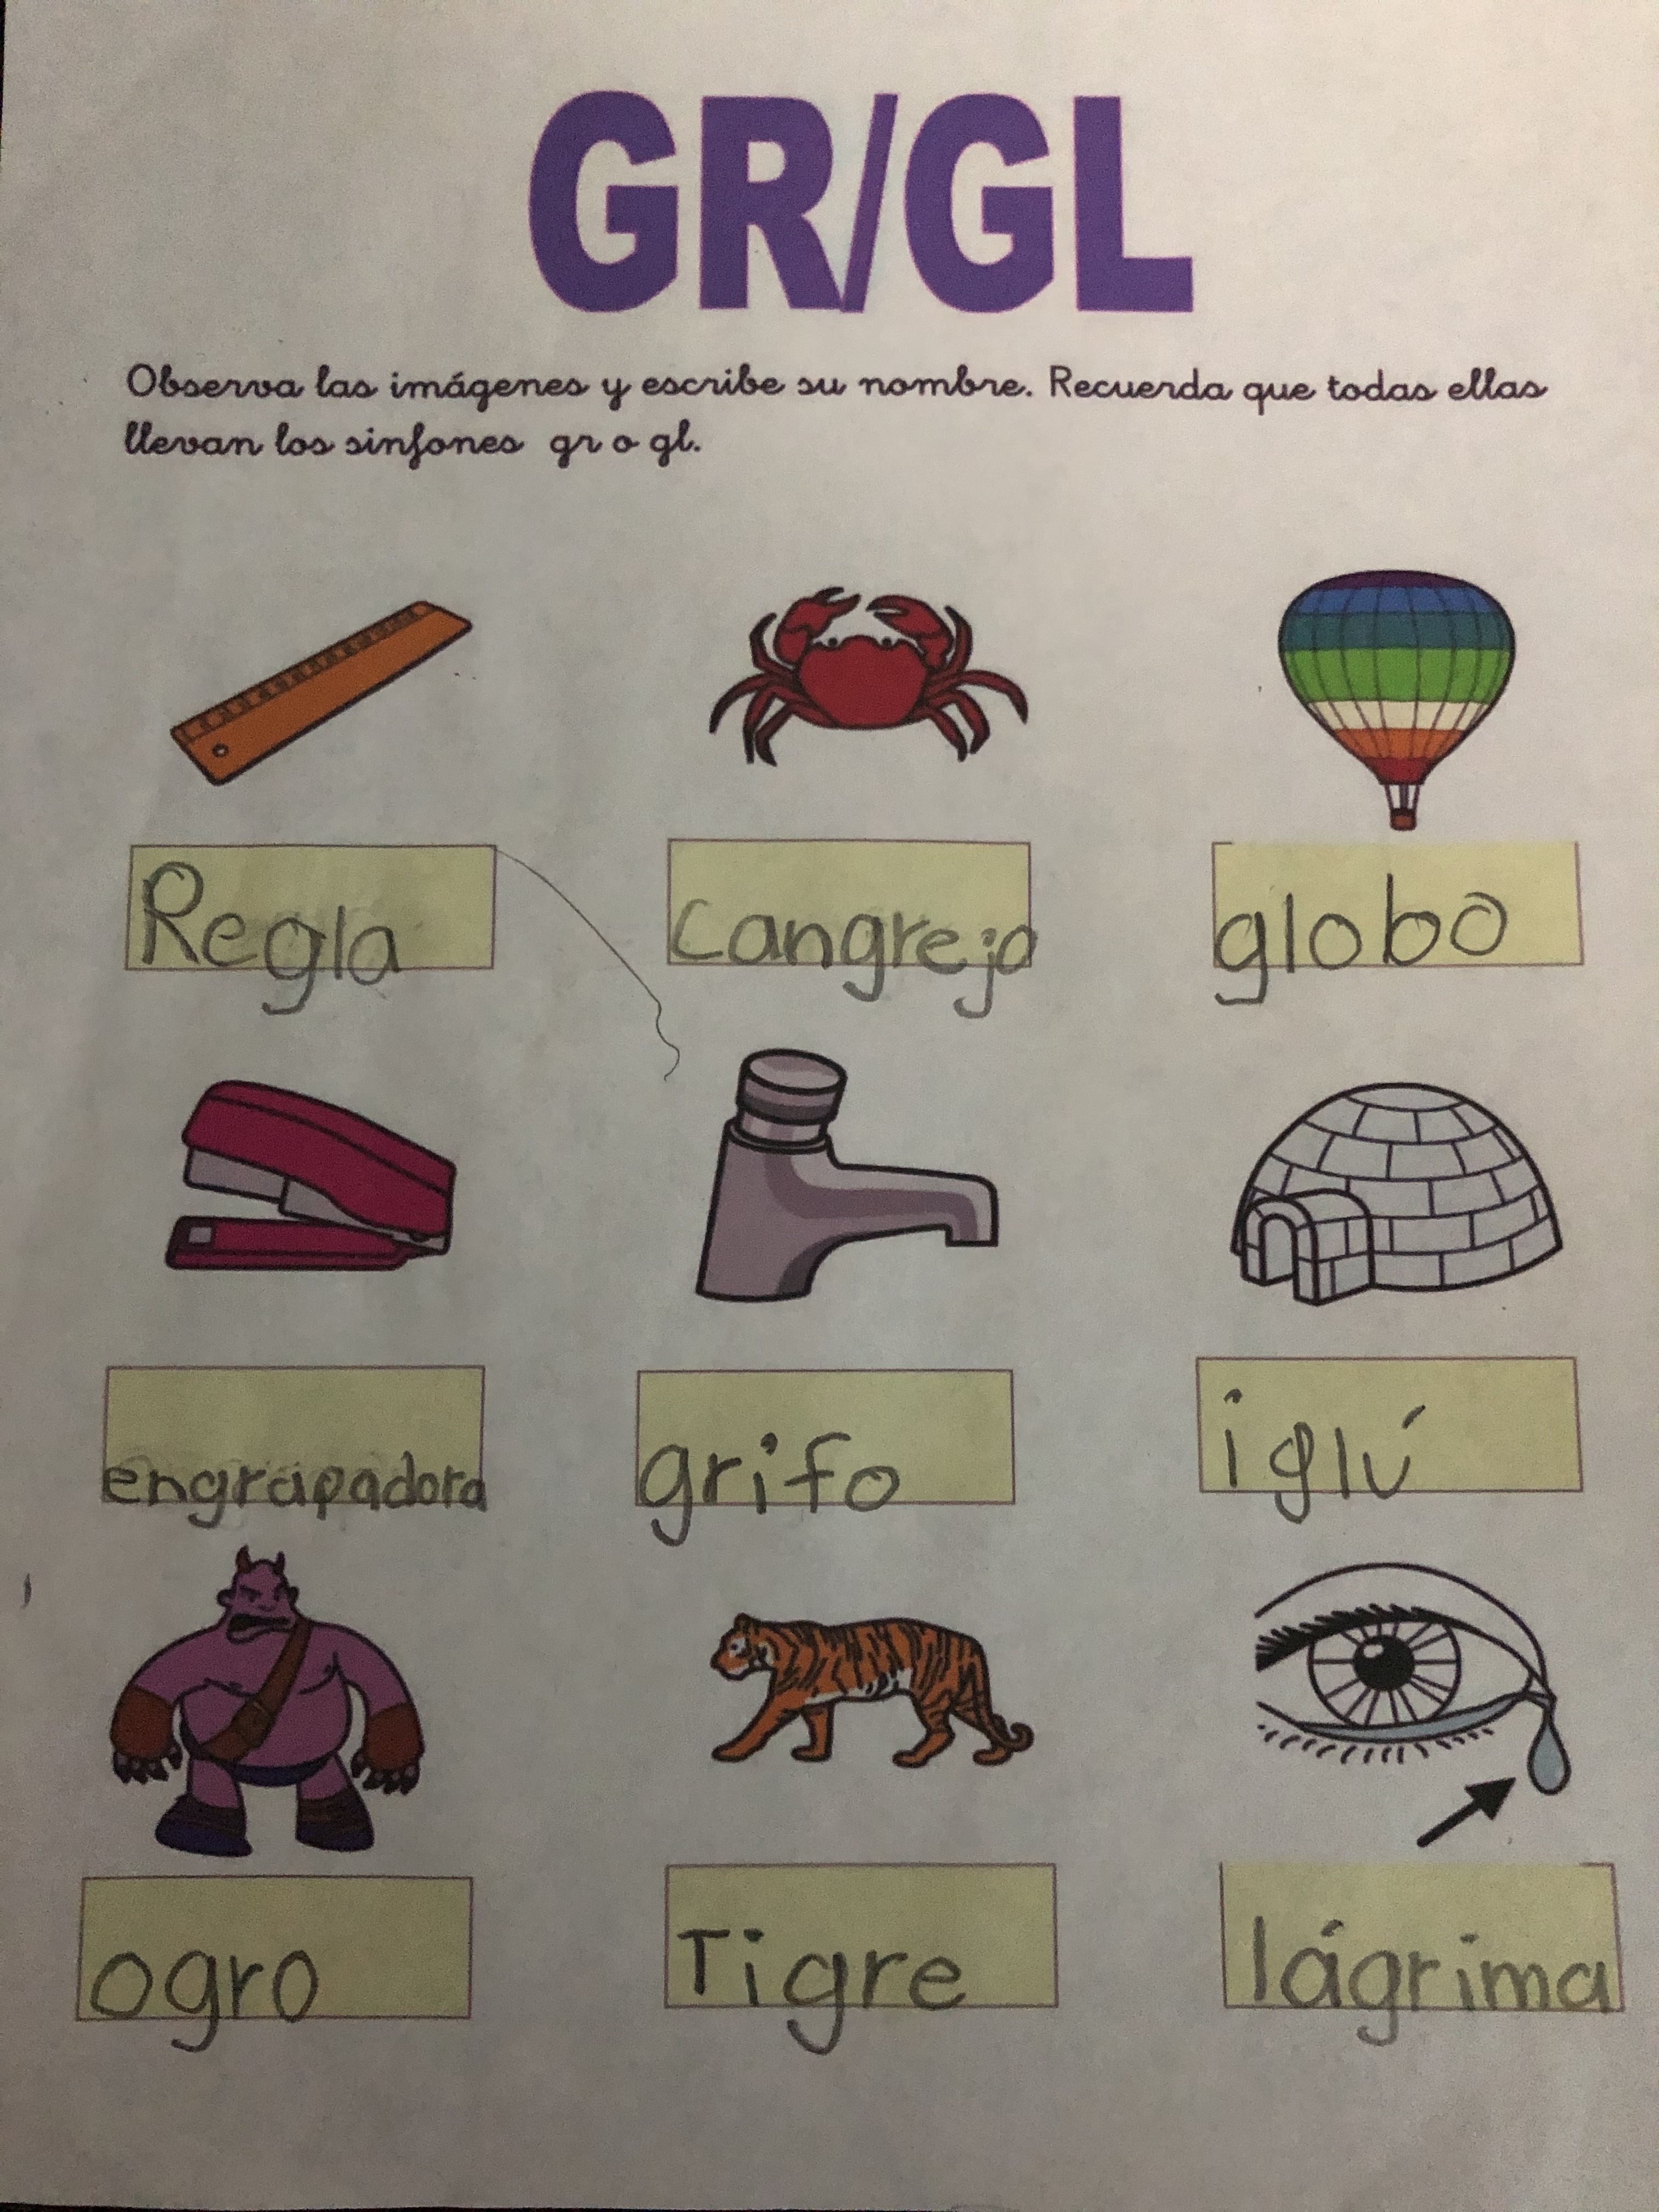 GR/GL
Observa las imágenes y escribe su nombre. Recuerda que todas ellas
llevan los sinfones gr o gl.
Regla
cangrejo
globo
engrapadora
grifo
iglú
ogro
Tigre
lágrima